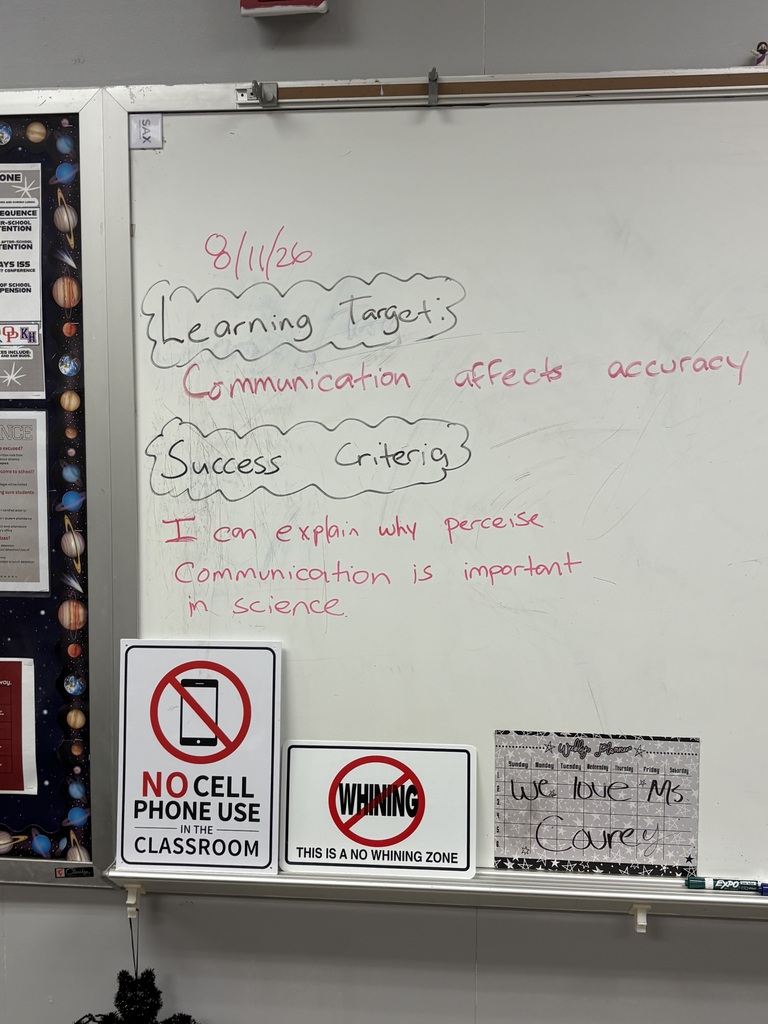 ONE
EQUENCE
ER-SCHOOL
TENTION
AFTER-SCHOOL
TENTION
AYS ISS
T CONFERENCE
OF SCHOOL
PENSION
OP KH
ES INCLUDE:
AND EAR BUDS.
NCE
SAX
8/11/26
Learning Target:
Communication affects accuracy
Success Criteria
I can explain why perceise
Communication is important
in science.
NO CELL
PHONE USE
IN THE
CLASSROOM
WHINING
THIS IS A NO WHINING ZONE
Weekly Planner
Sunday Monday Tuesday Wednesday Thursday Friday Saturday
We love Ms
Courey
EXPO